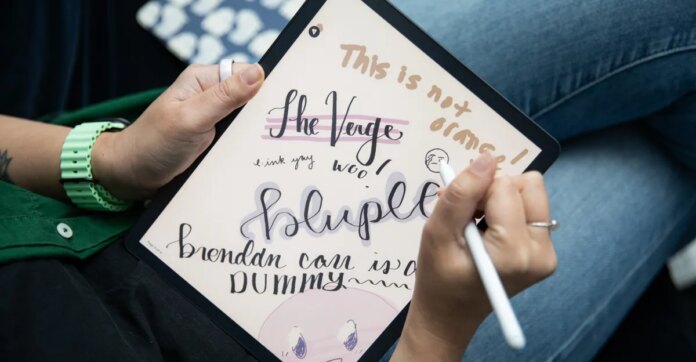 This is not
orange!
The Verge
e ink yay
woo!
bluple
brendan con is a
DUMMY